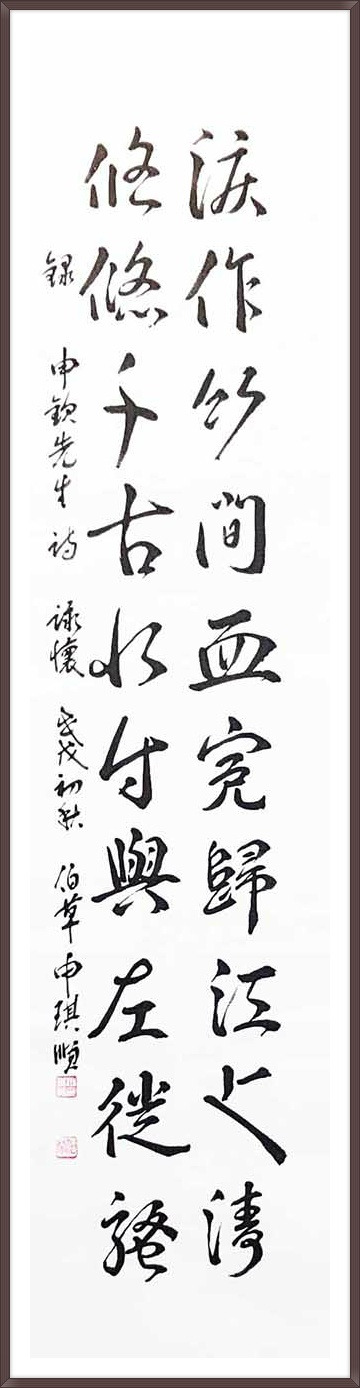 淚作竹間血寃歸江上濤
悠悠千古水付與左徒騷
錄 申欽先生詩 詠懷 戊戌初秋 伯草 申琪順